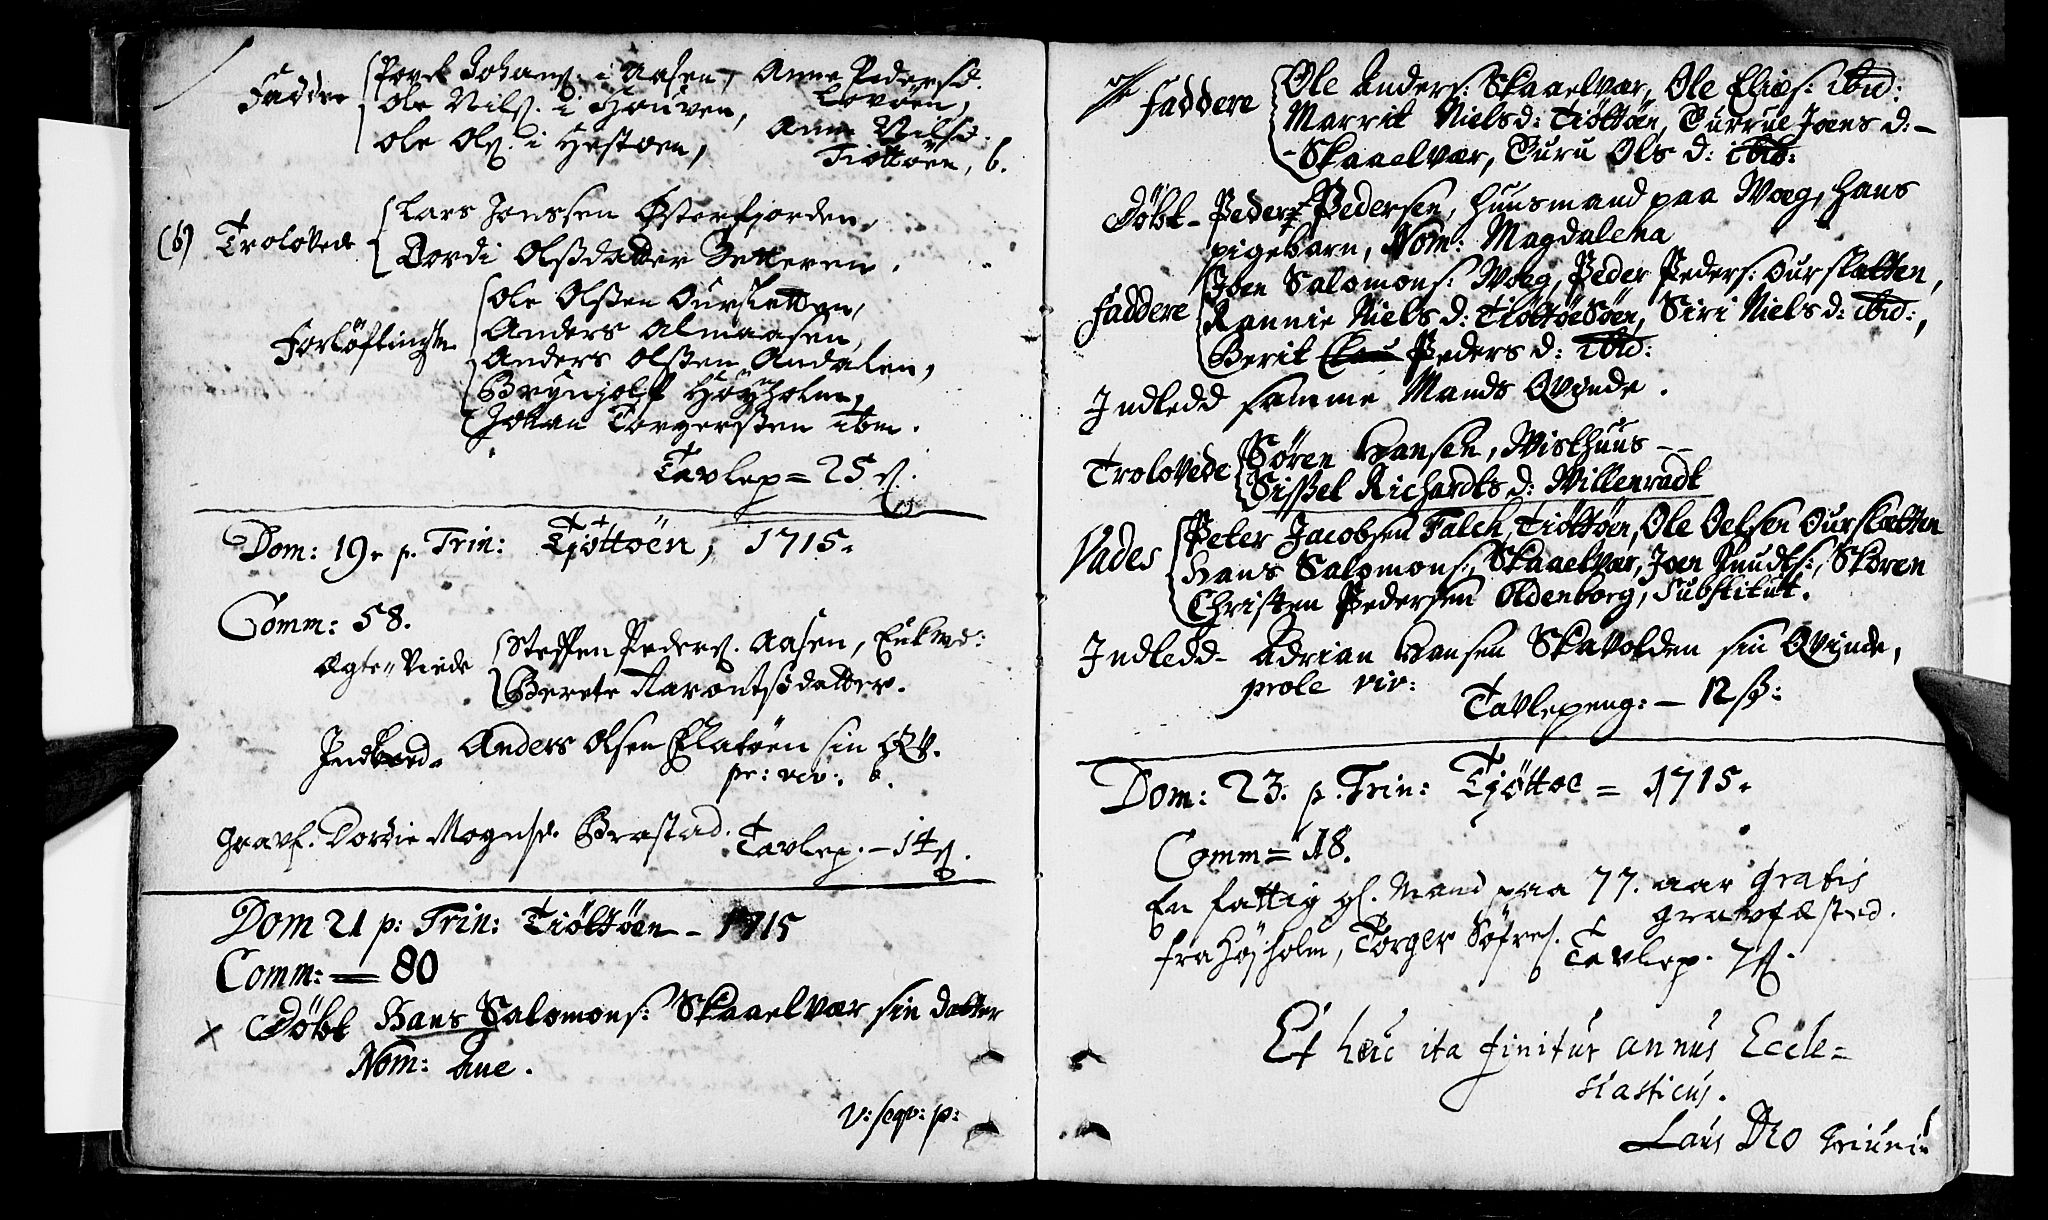 Faddere Povel Johans: i Aasen, Anne Pedersd.
Ole Nils. i Houven, Lovöen,
Ole Ols. i Hestöen, Anne Nilsd.
Tiöttöen, 6.
(6) Trolovede Lars Jonssen Österfjorden,
Dordi Olssdatter Zetteren.
Forlöftingsm Ole Olssen Oursletten,
Anders Almaasen,
Anders Olssen Andalen,
Brynjolff Höyholm,
Johan Torgerssen ibm.
Tavlep = 25 s.
Dom: 19. p. Trin: Tjöttöen, 1715.
Comm: 58.
Ægte-Viede Steffen Peders. Aasen, Enkmd:
Berete Aarontsdatter.
Indleed. Anders Olsen Flatöen sin QV.
pr: viv: 6.
Gravf. Dordie Mognsd. Brastad. Tavlep. - 14 s.
Dom 21 p: Trin: Tiöttöen - 1715
Comm: = 80
× Döbt Hans Salomons: Skaaelvær sin datter
Nom: Ane.
v: seqv: p:
Faddere Ole Anders: Skaaelvær, Ole Elies: ibid:
Marrit Nielsd: Tiöttöen, Turrue Joensd: -
- Skaaelvær, Guru Olsd: ibid:
Döbt - Peder Pedersen, huusmand paa Woeg, hans
pigebarn, Nom: Magdalena
Faddere Joen Salomons: Woeg, Peder Peders: Ourslætten,
Rannie Nielsd: Tiöttöe Söen, Siri Nielsd: ibid:,
Berit Pedersd: ibid:
Indledd samme Mands Qvinde.
Trolovede Sören Hansen, Wisthuus - -
Sissel Richardtsd: Willenradt
Vades Peter Jacobsen Falch, Tiöttöen, Ole Oelsen Ourslætten
Hans Salomons:, Skaaelvær, Joen Knudts:, Skoren
Christen Pedersen Oldenborg, Substitut.
Indledd - Adrian Hansen Skavolden sin Qvinde,
prole viv:
Tavlepeng: - 12 ss:
Dom: 23. p. Trin: Tjöttöe = 1715.
Comm = 18.
En fattig gl. Mand paa 77. aar gratis
gravfæsted.
fra Höjholm, Torger Söfres. Tavlep. 7 s.
Et huc ita finitur annus Eccle=
siasticus.
Laus DEO triuni